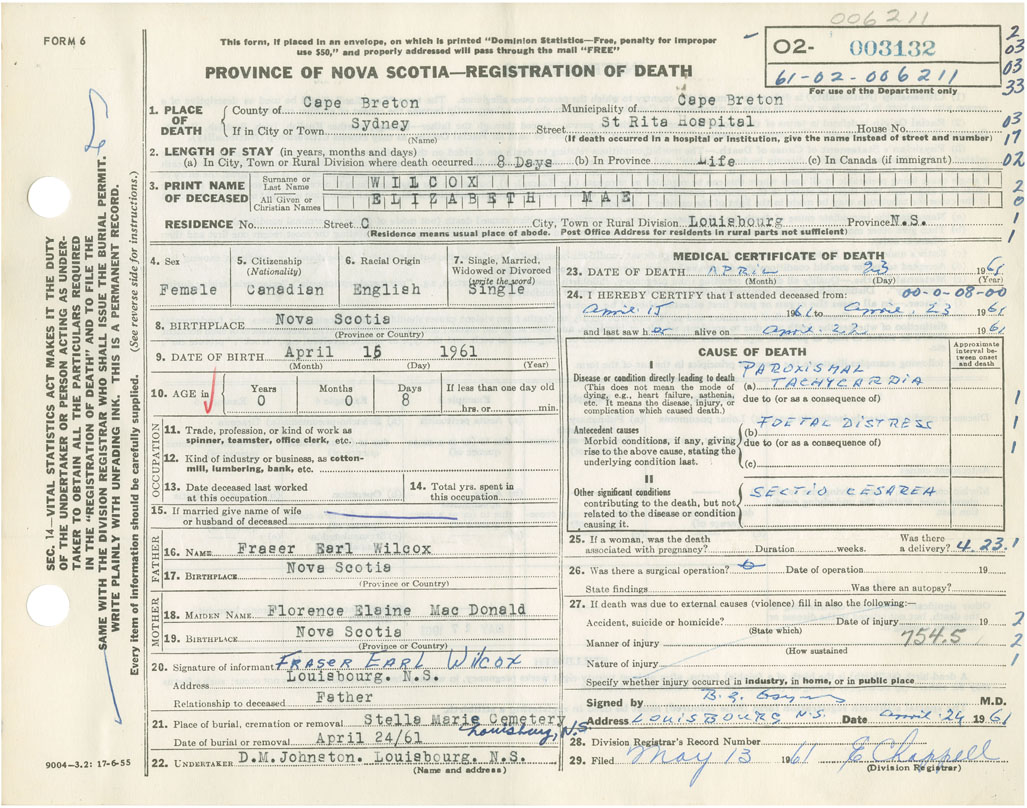 006211
FORM 6
This form, if placed in an envelope, on which is printed "Dominion Statistics—Free, penalty for improper
use $50," and properly addressed will pass through the mail "FREE"
PROVINCE OF NOVA SCOTIA—REGISTRATION OF DEATH
02- 003132
61-02-006211
For use of the Department only
2
03
03
33
03
17
02
2
0
1
1
1. PLACE OF DEATH
County of Cape Breton Municipality of Cape Breton
If in City or Town Sydney Street St Rita Hospital House No.
(Name) (If death occurred in a hospital or institution, give the name instead of street and number)
2. LENGTH OF STAY (in years, months and days)
(a) In City, Town or Rural Division where death occurred 8 Days (b) In Province Life (c) In Canada (if immigrant)
3. PRINT NAME OF DECEASED
Surname or Last Name WILCOX
All Given or Christian Names ELIZABETH MAE
RESIDENCE No. Street C City, Town or Rural Division Louisbourg Province N.S.
(Residence means usual place of abode. Post Office Address for residents in rural parts not sufficient)
4. Sex
Female
5. Citizenship
(Nationality)
Canadian
6. Racial Origin
English
7. Single, Married,
Widowed or Divorced
(write the word)
Single
8. BIRTHPLACE Nova Scotia
(Province or Country)
9. DATE OF BIRTH April 15 1961
(Month) (Day) (Year)
10. AGE in
Years Months Days If less than one day old
0 0 8 hrs. or min.
OCCUPATION
11. Trade, profession, or kind of work as
spinner, teamster, office clerk, etc.
12. Kind of industry or business, as cotton-
mill, lumbering, bank, etc.
13. Date deceased last worked
at this occupation
14. Total yrs. spent in
this occupation
15. If married give name of wife
or husband of deceased
FATHER
16. NAME Fraser Earl Wilcox
17. BIRTHPLACE Nova Scotia
(Province or Country)
MOTHER
18. MAIDEN NAME Florence Elaine Mac Donald
19. BIRTHPLACE Nova Scotia
(Province or Country)
20. Signature of informant FRASER EARL WILCOX
Address Louisbourg. N.S.
Relationship to deceased Father
21. Place of burial, cremation or removal Stella Marie Cemetery
Louisburg, N.S.
Date of burial or removal April 24/61
22. UNDERTAKER D.M.Johnston. Louisbourg. N.S.
(Name and address)
MEDICAL CERTIFICATE OF DEATH
23. DATE OF DEATH APRIL 23 1961
(Month) (Day) (Year)
24. I HEREBY CERTIFY that I attended deceased from: 00-0-08-00
April 15 1961 to April. 23 1961
and last saw her alive on April. 22 1961
CAUSE OF DEATH
Approximate interval between onset and death
I
Disease or condition directly leading to death
(This does not mean the mode of
dying, e.g., heart failure, asthenia,
etc. It means the disease, injury, or
complication which caused death.)
PAROXISMAL
(a) TACHYCARDIA
due to (or as a consequence of)
Antecedent causes
Morbid conditions, if any, giving
rise to the above cause, stating the
underlying condition last.
(b) FOETAL DISTRESS
due to (or as a consequence of)
(c)
II
Other significant conditions
contributing to the death, but not
related to the disease or condition
causing it.
SECTIO CESAREA
1
1
1
25. If a woman, was the death
associated with pregnancy? Duration weeks. Was there
a delivery? 4.23.1
26. Was there a surgical operation? Date of operation 19
State findings Was there an autopsy?
27. If death was due to external causes (violence) fill in also the following:—
Accident, suicide or homicide? Date of injury 19 2
(State which)
Manner of injury 754.5 2
(How sustained
Nature of injury 1
Specify whether injury occurred in industry, in home, or in public place
Signed by M.D.
Address LOUISBOURG N.S. Date April. 24 1961
28. Division Registrar's Record Number
29. Filed May 13 1961 E Chappell
(Division Registrar)
SEC. 14—VITAL STATISTICS ACT MAKES IT THE DUTY
OF THE UNDERTAKER OR PERSON ACTING AS UNDER-
TAKER TO OBTAIN ALL THE PARTICULARS REQUIRED
IN THE "REGISTRATION OF DEATH" AND TO FILE THE
SAME WITH THE DIVISION REGISTRAR WHO SHALL ISSUE THE BURIAL PERMIT.
WRITE PLAINLY WITH UNFADING INK. THIS IS A PERMANENT RECORD.
Every item of information should be carefully supplied. (See reverse side for instructions.)
9004-3.2: 17-6-55